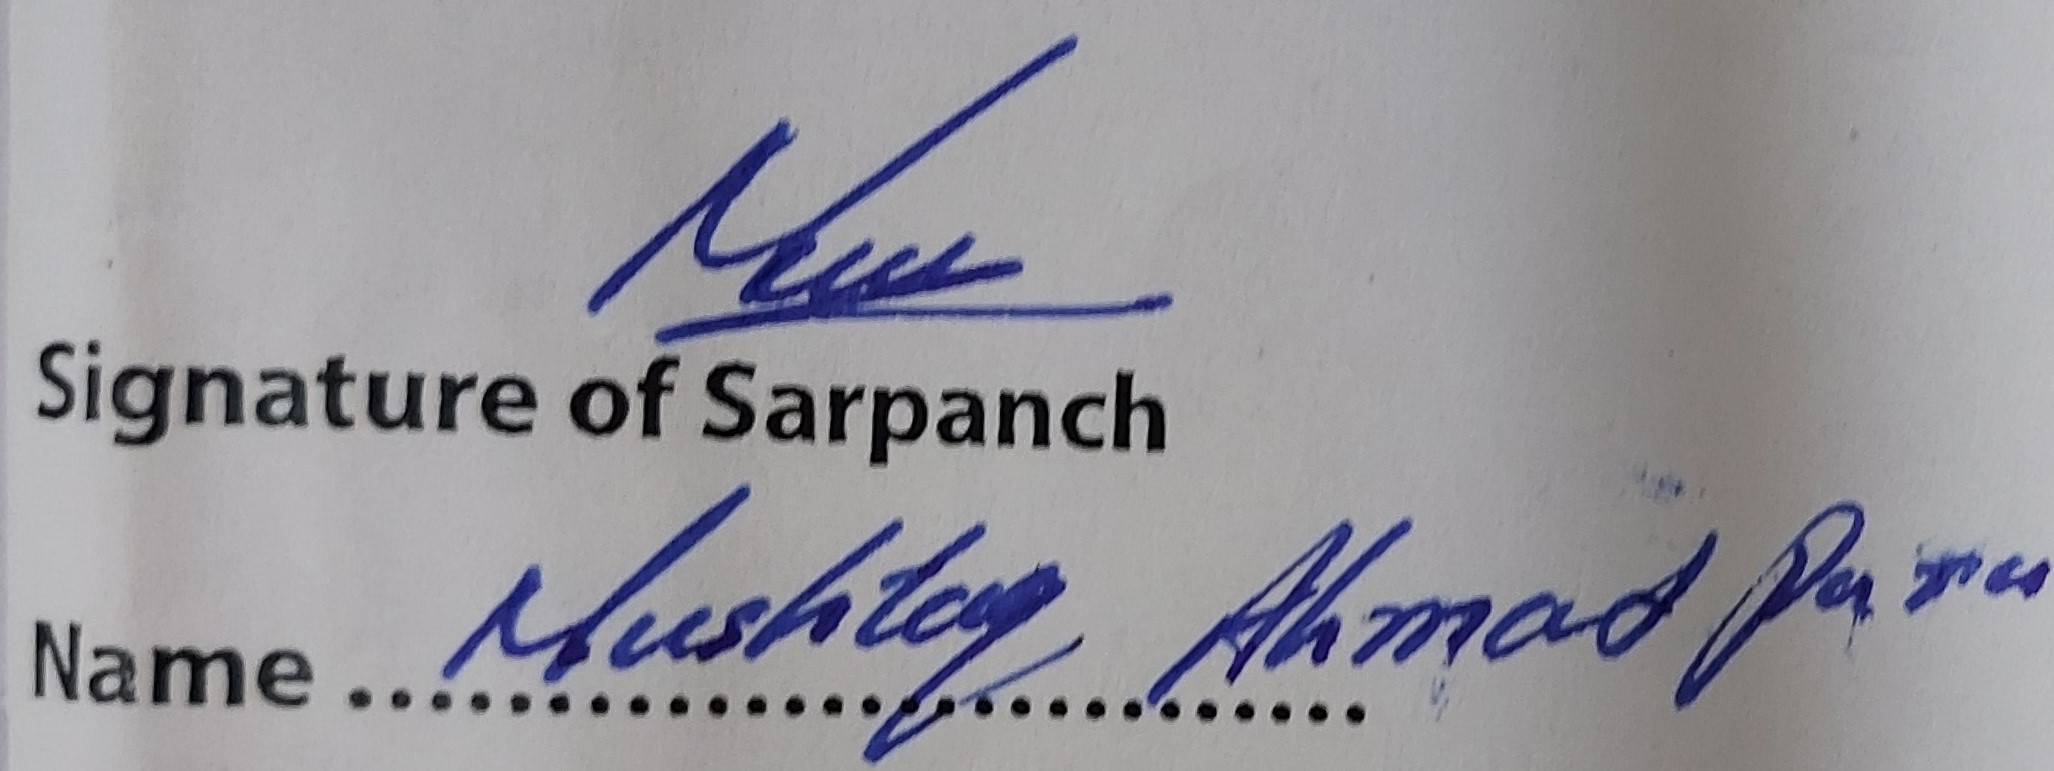 Signature of Sarpanch
Name .......................... Mushtaq Ahmad